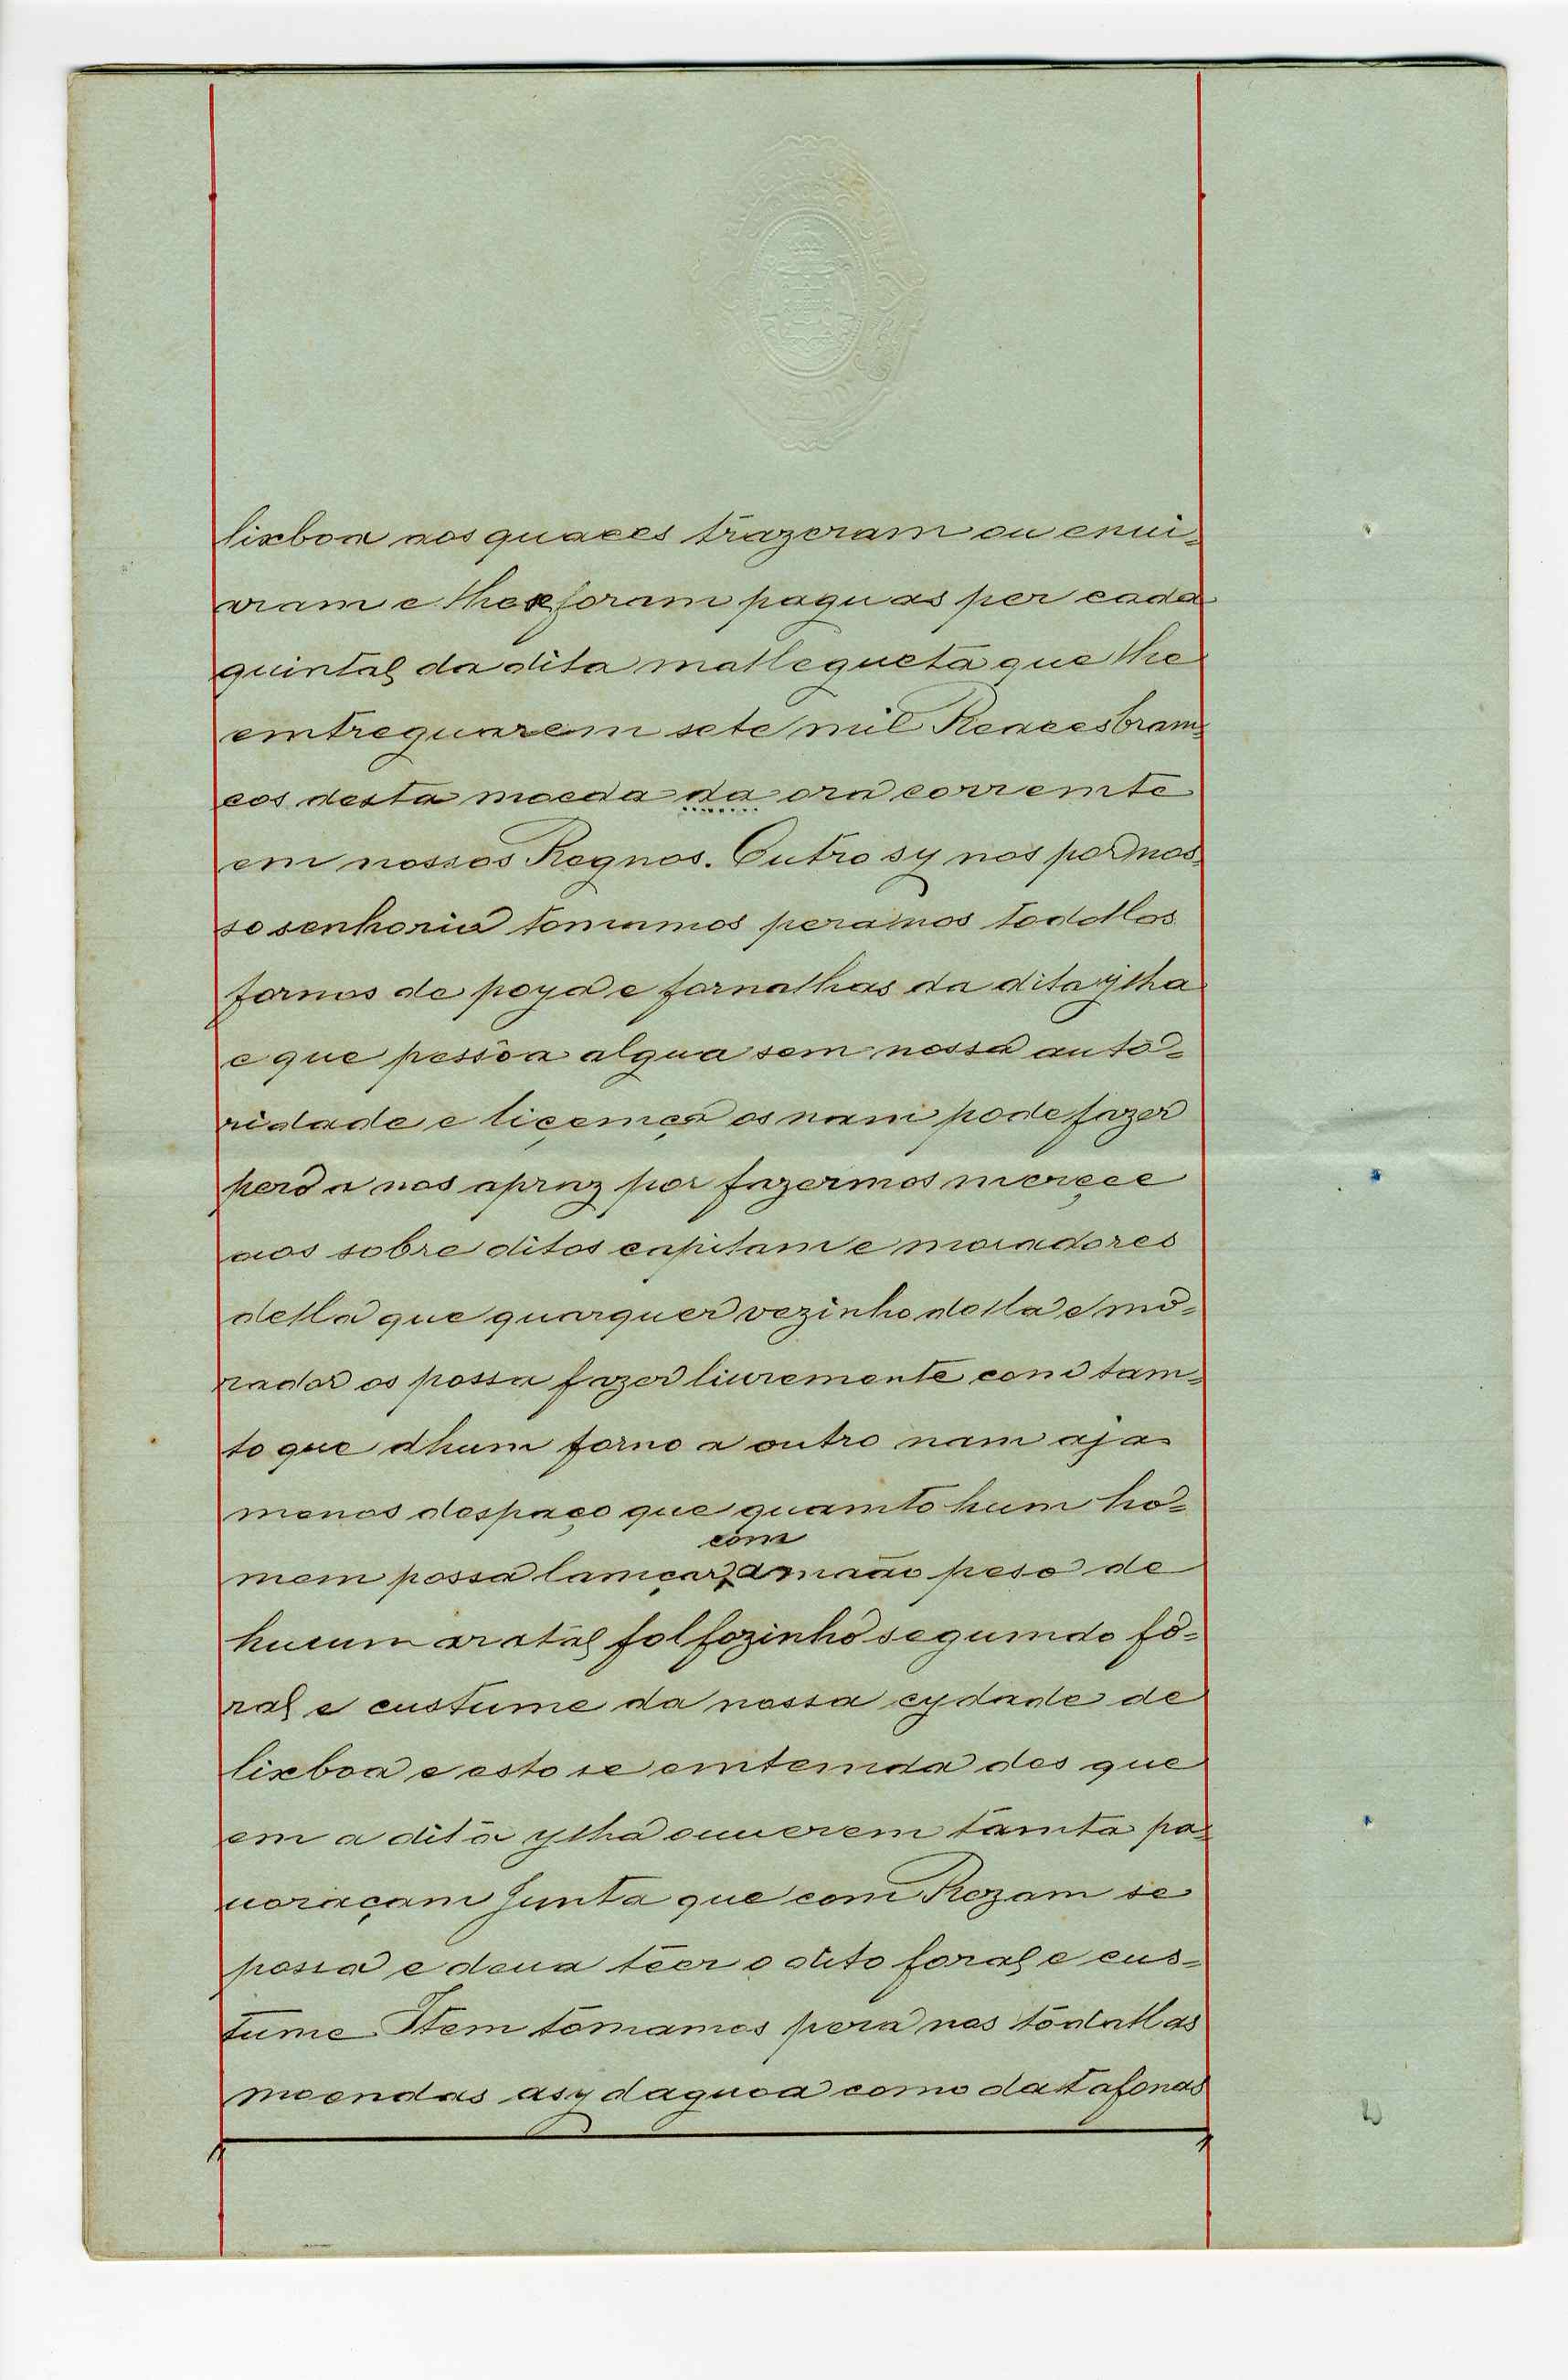 lixboa aos quaees trazeram ou enui-
aram e lhes foram paguas per cada
quintal da dita mallegueta que lhe
emtreguarem sete mil Reaees bram-
cos desta moeda da ora corremte
em nossos Regnos. Outro sy nos por nos-
so senhorio tomamos pera nos todollos
fornos de poya e fornalhas da dita ylha
e que pessõa algua sem nossa auto-
ridade e liçemça os nam pode fazer
pero a nos apraz por fazermos merçee
aos sobre ditos capitam e moradores
della que quarquer vezinho della e mo-
rador os possa fazer liuremente com tam-
to que dhum forno a outro nam aja
menos despaço que quamto hum ho-
com
mem possa lamçar a maão peso de
huum aratal folfozinho segumdo fo-
ral e custume da nossa cydade de
lixboa e esto se emtemda des que
em a dita ylha ouuerem tamta po-
uoraçam Junta que com Rezam se
possa e deua tẽer o dito foral e cus-
tume Item tomamos pera nos todallas
moendas asy daguoa como datafonas
2